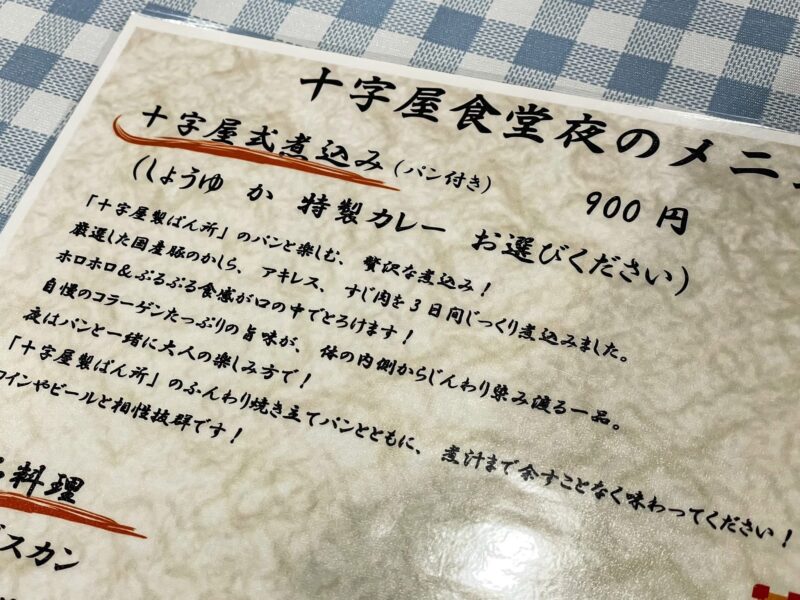 十字屋食堂夜のメニ
十字屋式煮込み(パン付き) 900 円
(しょうゆ か 特製カレー お選びください)
「十字屋製ぱん所」のパンと楽しむ、贅沢な煮込み!
厳選した国産豚のかしら、アキレス、すじ肉を3日間じっくり煮込みました。
ホロホロ&ぷるぷる食感が口の中でとろけます!
自慢のコラーゲンたっぷりの旨味が、体の内側からじんわり染み渡る一品。
夜はパンと一緒に大人の楽しみ方で!
「十字屋製ぱん所」のふんわり焼き立てパンとともに、煮汁まで余すことなく味わってください!
インやビールと相性抜群です!
料理
スカン